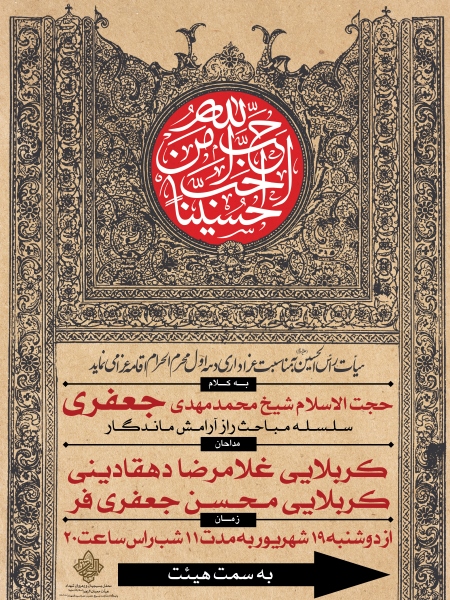 احب الله من احب حسینا
هیأت رأس الحسین به مناسبت عزاداری دهه اول محرم الحرام اقامه عزا می نماید
به کلام
حجت الاسلام شیخ محمد مهدی جعفری
سلسله مباحث راز آرامش ماندگار
مداحان
کربلایی غلامرضا دهقادینی
کربلایی محسن جعفری فر
زمان
از دوشنبه ۱۹ شهریور به مدت ۱۱ شب راس ساعت ۲۰
به سمت هیئت